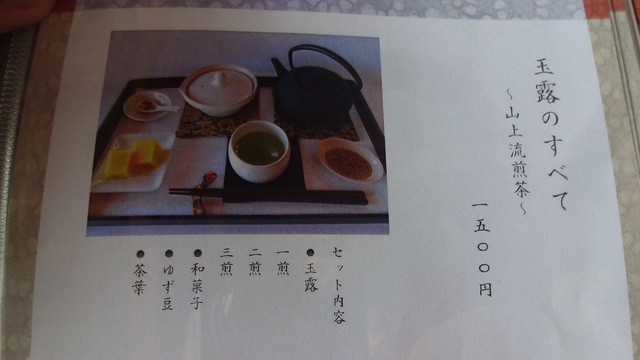 玉露のすべて
～山上流煎茶～
一五〇〇円
セット内容
●玉露
一煎
二煎
三煎
●和菓子
●ゆず豆
●茶葉